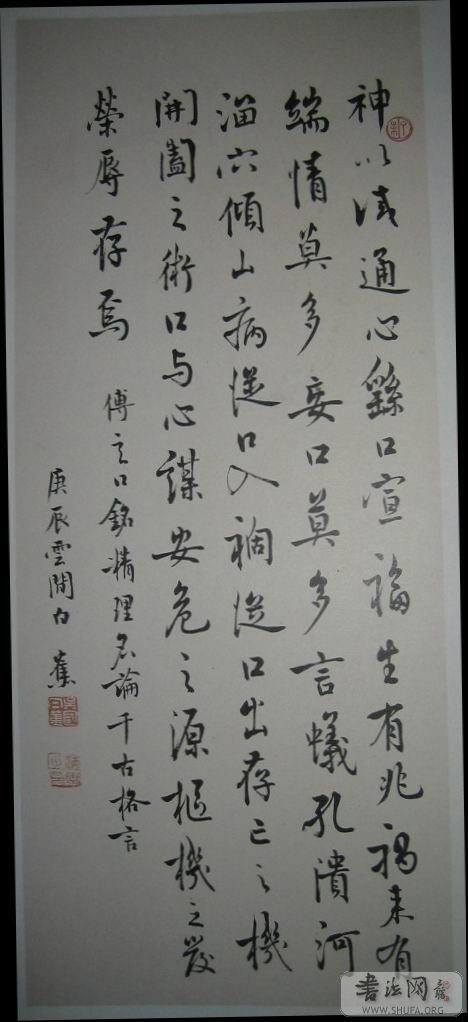 神以誠通心繇口宣福生有兆禍来有
端情莫多妄口莫多言蟻孔潰河
溜穴傾山病從口入禍從口出存亡之機
開闔之術口与心謀安危之源樞機之發
榮辱存焉
傅玄口銘精理名論千古格言
庚辰雲間白蕉
书法网
WWW.SHUFA.ORG